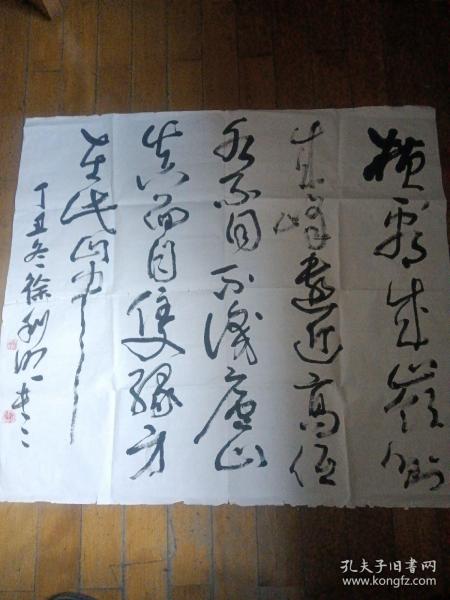 横看成岭侧
成峰远近高低
各不同不识庐山
真面目只缘身
在此山中
丁丑冬徐利明书
孔夫子旧书网
www.kongfz.com